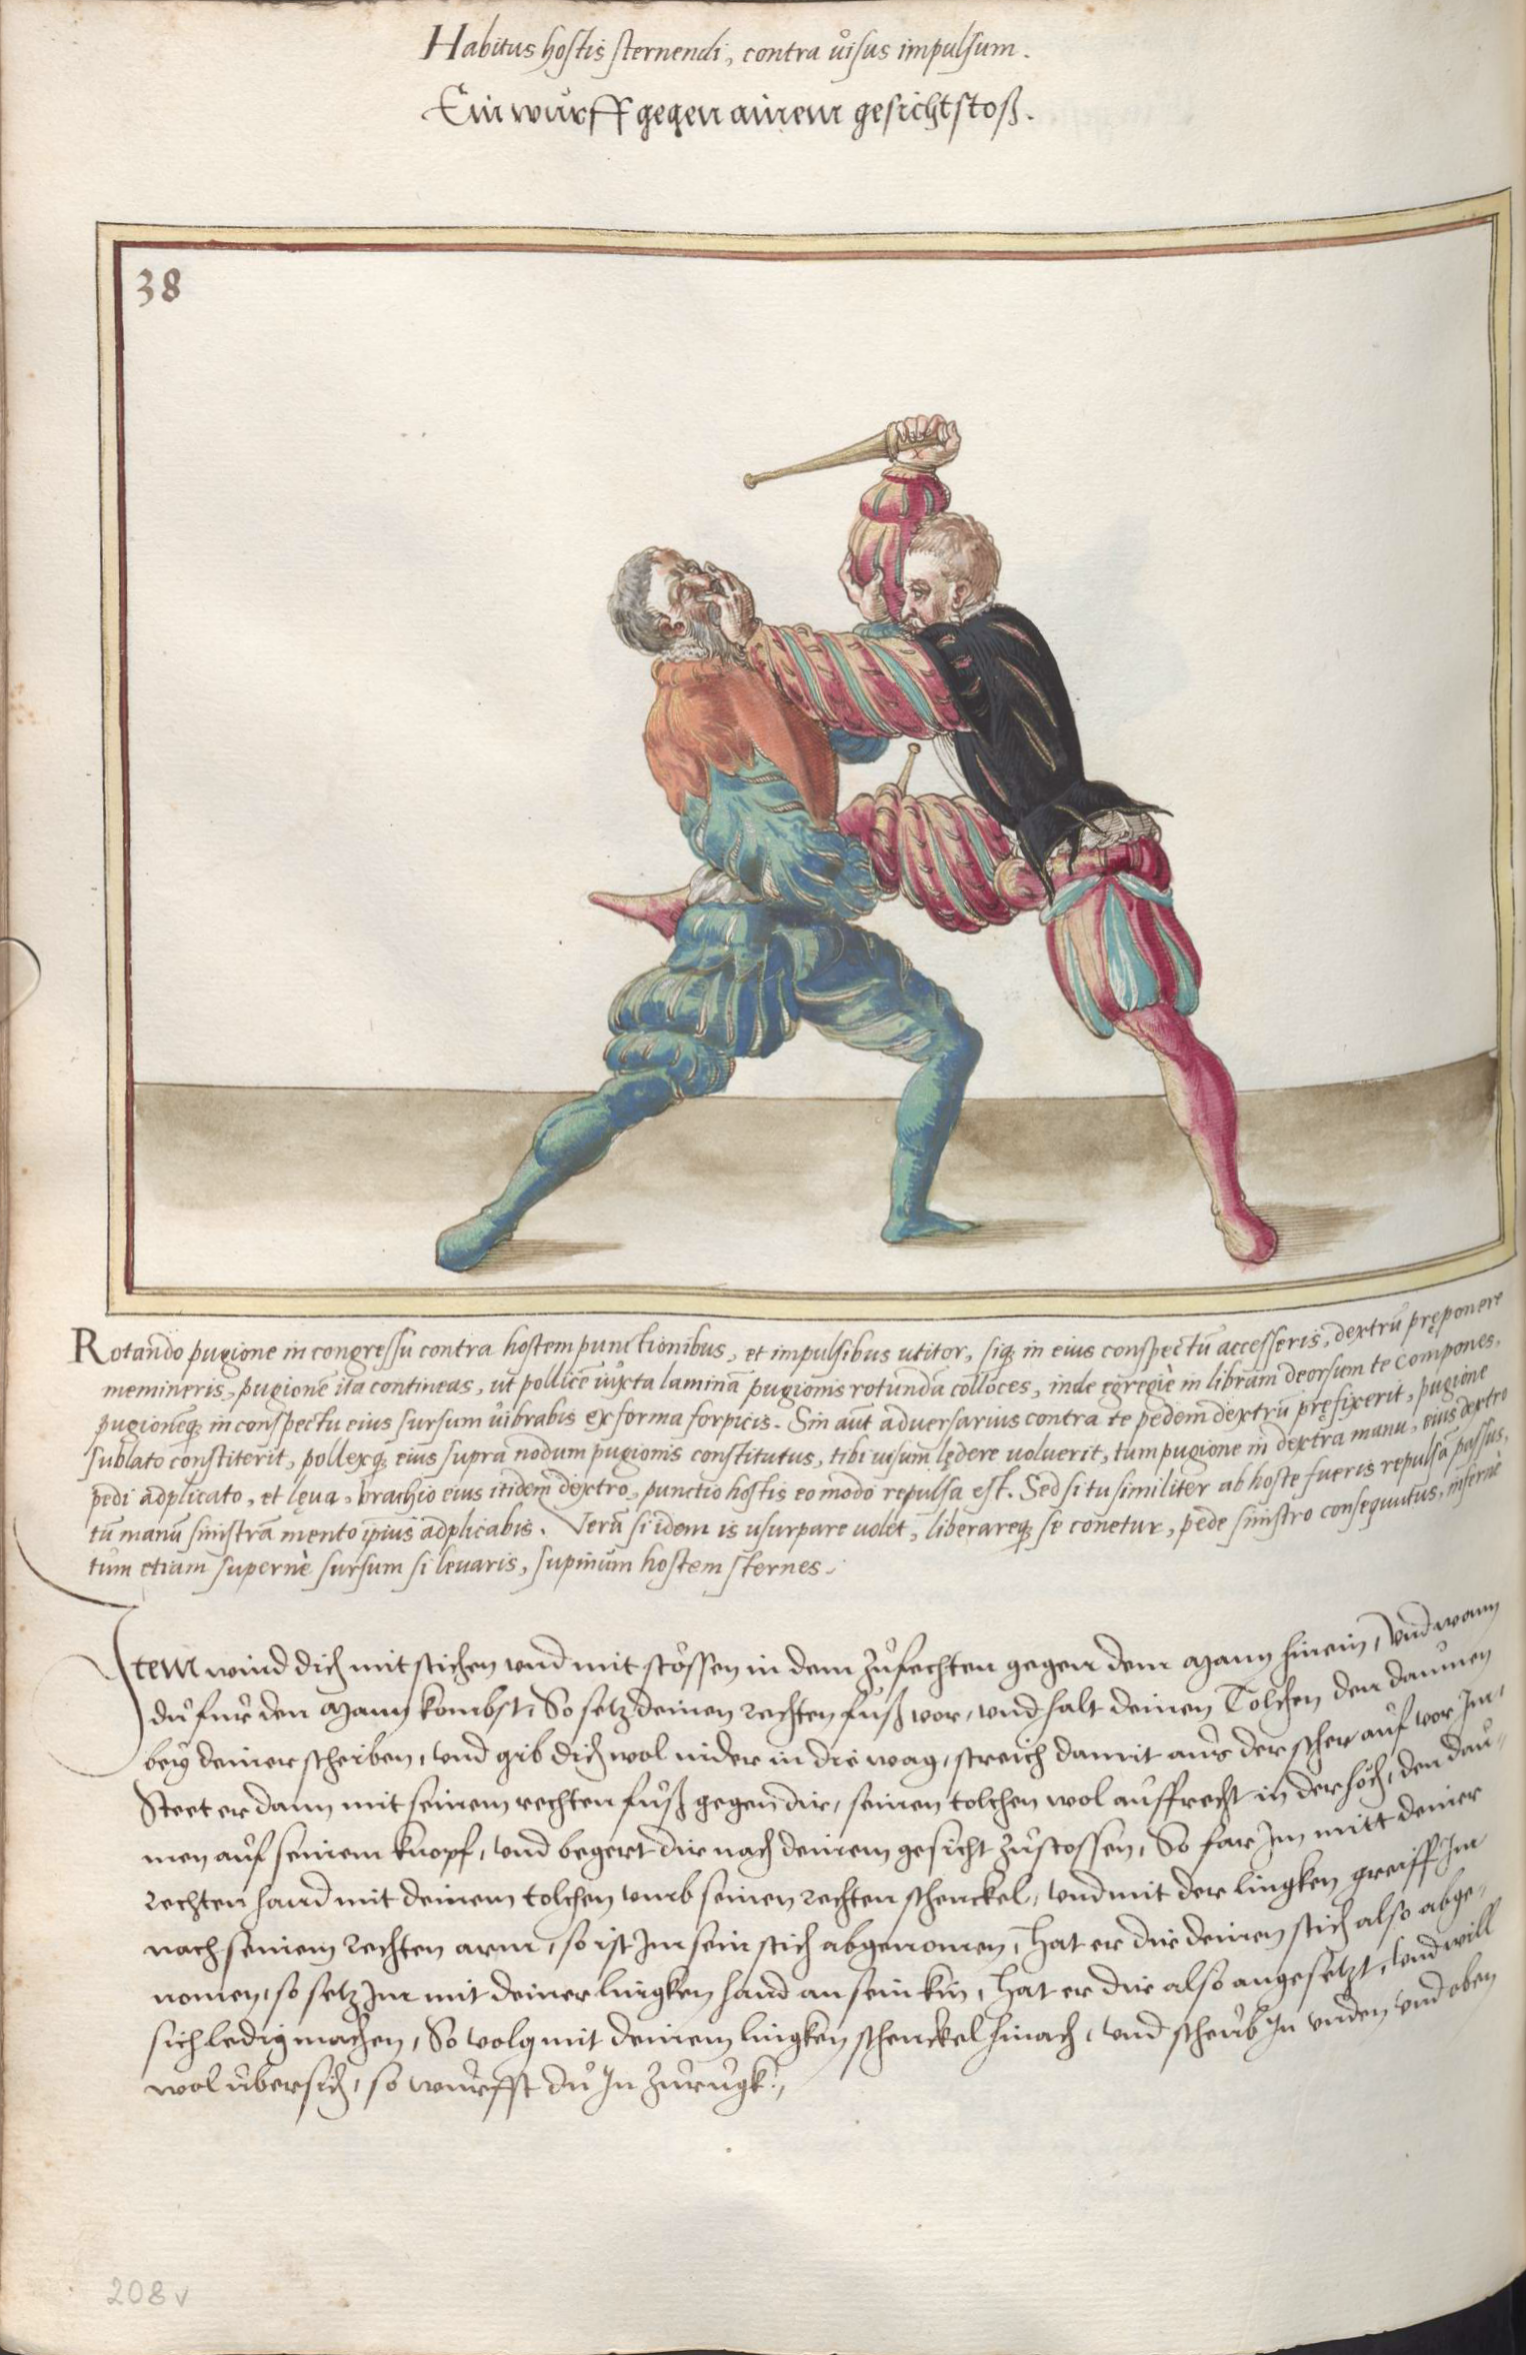 Habitus hostis sternendi, contra uisus impulsum.
Ein wurff gegen ainem gesichtstoß.
38
Rotando pugione in congressu contra hostem punctionibus, et impulsibus utitor, siq; in eius conspectū accesseris, dextrū pręponere
memineris, pugionē ita contineas, ut pollicē iuxta laminā pugionis rotundā colloces, inde egregiè in libram deorsum te compones,
pugionēq; in conspectu eius sursum uibrabis ex forma forpicis. Sin aūt aduersarius contra te pedem dextrū pręfixerit, pugione
sublato constiterit, pollexq; eius supra nodum pugionis constitutus, tibi uisum lędere uoluerit, tum pugione in dextra manu, eius dextro
pedi adplicato, et lęua, brachio eius itidem dextro, punctio hostis eo modo repulsa est. Sed si tu similiter ab hoste fueris repulsā passus,
tū manū sinistrā mento ipius adplicabis. Verū si idem is usurpare uolet, liberareq; se conetur, pede sinistro consequutus, infernè
tum etiam supernè sursum si leuaris, supinum hostem sternes.
Item wind dich mit stichen vnd mit stössen in dem zůfechten gegen dem Mann hinein, vnd wann
dů für den Mann kombst, So setz deinen rechten fůß vor, vnd halt deinen Tolchen den daumen
bey deiner scheiben, vnd gib dich wol nider in die wag, streich damit aus der scher auf vor Im,
Steet er dann mit seinem rechten fůß gegen dir, seinen tolchen wol aufrecht in der höch, den dau-
men auf seinem knopf, vnd begert dir nach deinem gesicht zůstossen, So far Im mitt deiner
rechten hand mit deinem tolchen vmb seinen rechten schenckel, vnd mit der lingken greiff Im
nach seinem rechten arm, so ist Im sein stich abgenomen, Hat er dir deinen stich also abge-
nomen, so setz Im mit deiner lingken hand an sein kin, Hat er dir also angesetzt, vnd will
sich ledig machen, So volg mit deinem lingken schenckel hinach, vnd scheub In vnden vnd oben
wol übersich, so würffst dů In zůrugk.
208 v